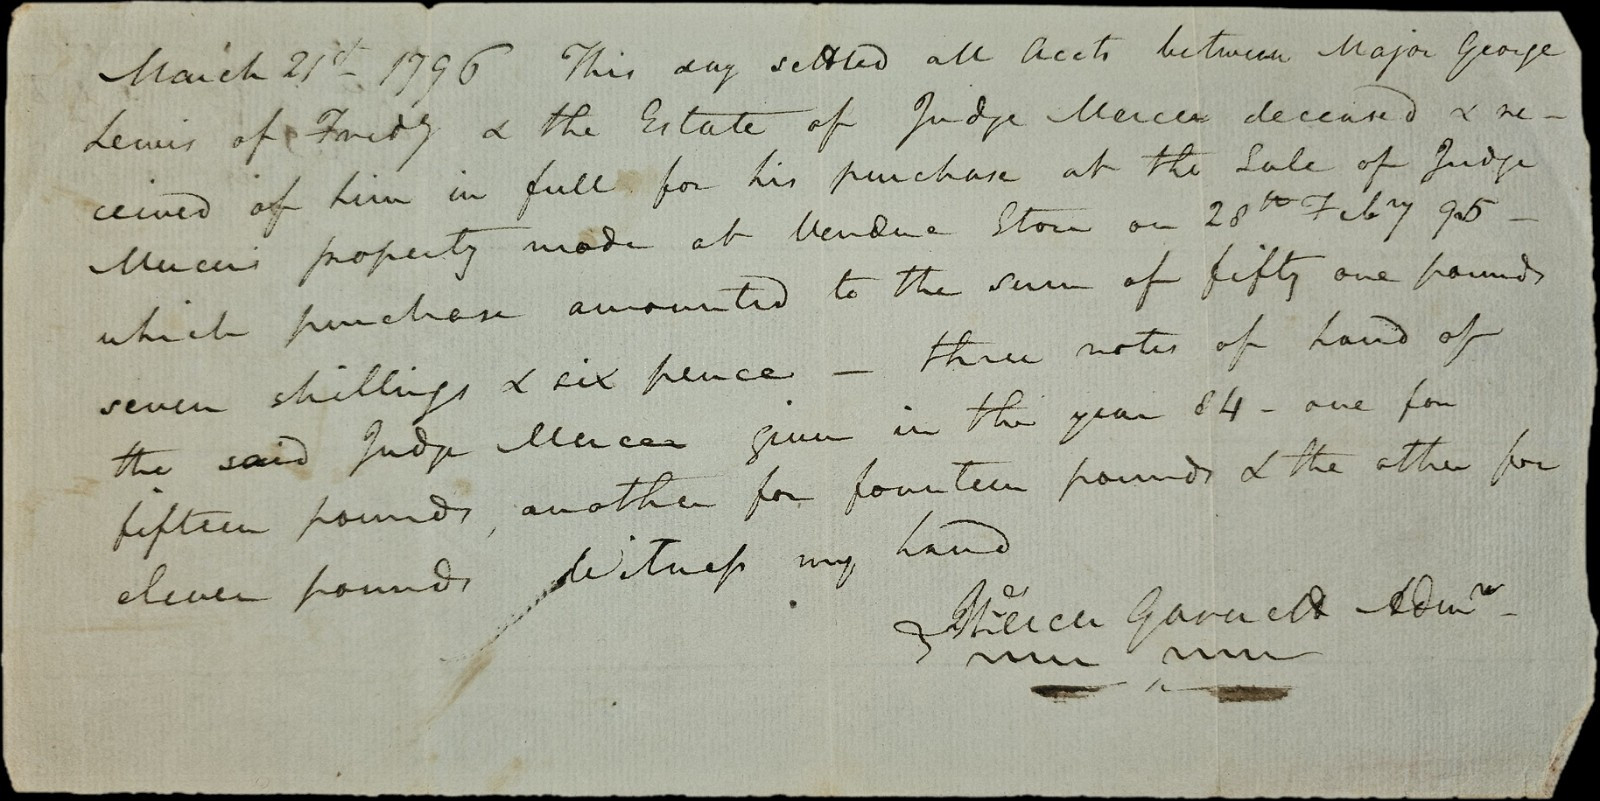 March 21st 1796 This day settled all Accts between Major George
Lewis of Fredg & the Estate of Judge Mercer deceased & re-
ceived of him in full for his purchase at the Sale of Judge
Mercers property made at Vendue Store on 28th Febry 95 -
which purchase amounted to the sum of fifty one pounds
seven shillings & six pence - three notes of hand of
the said Judge Mercer given in the year 84 - one for
fifteen pounds, another for fourteen pounds & the other for
eleven pounds Witness my hand
Mercer Garnett Admr -